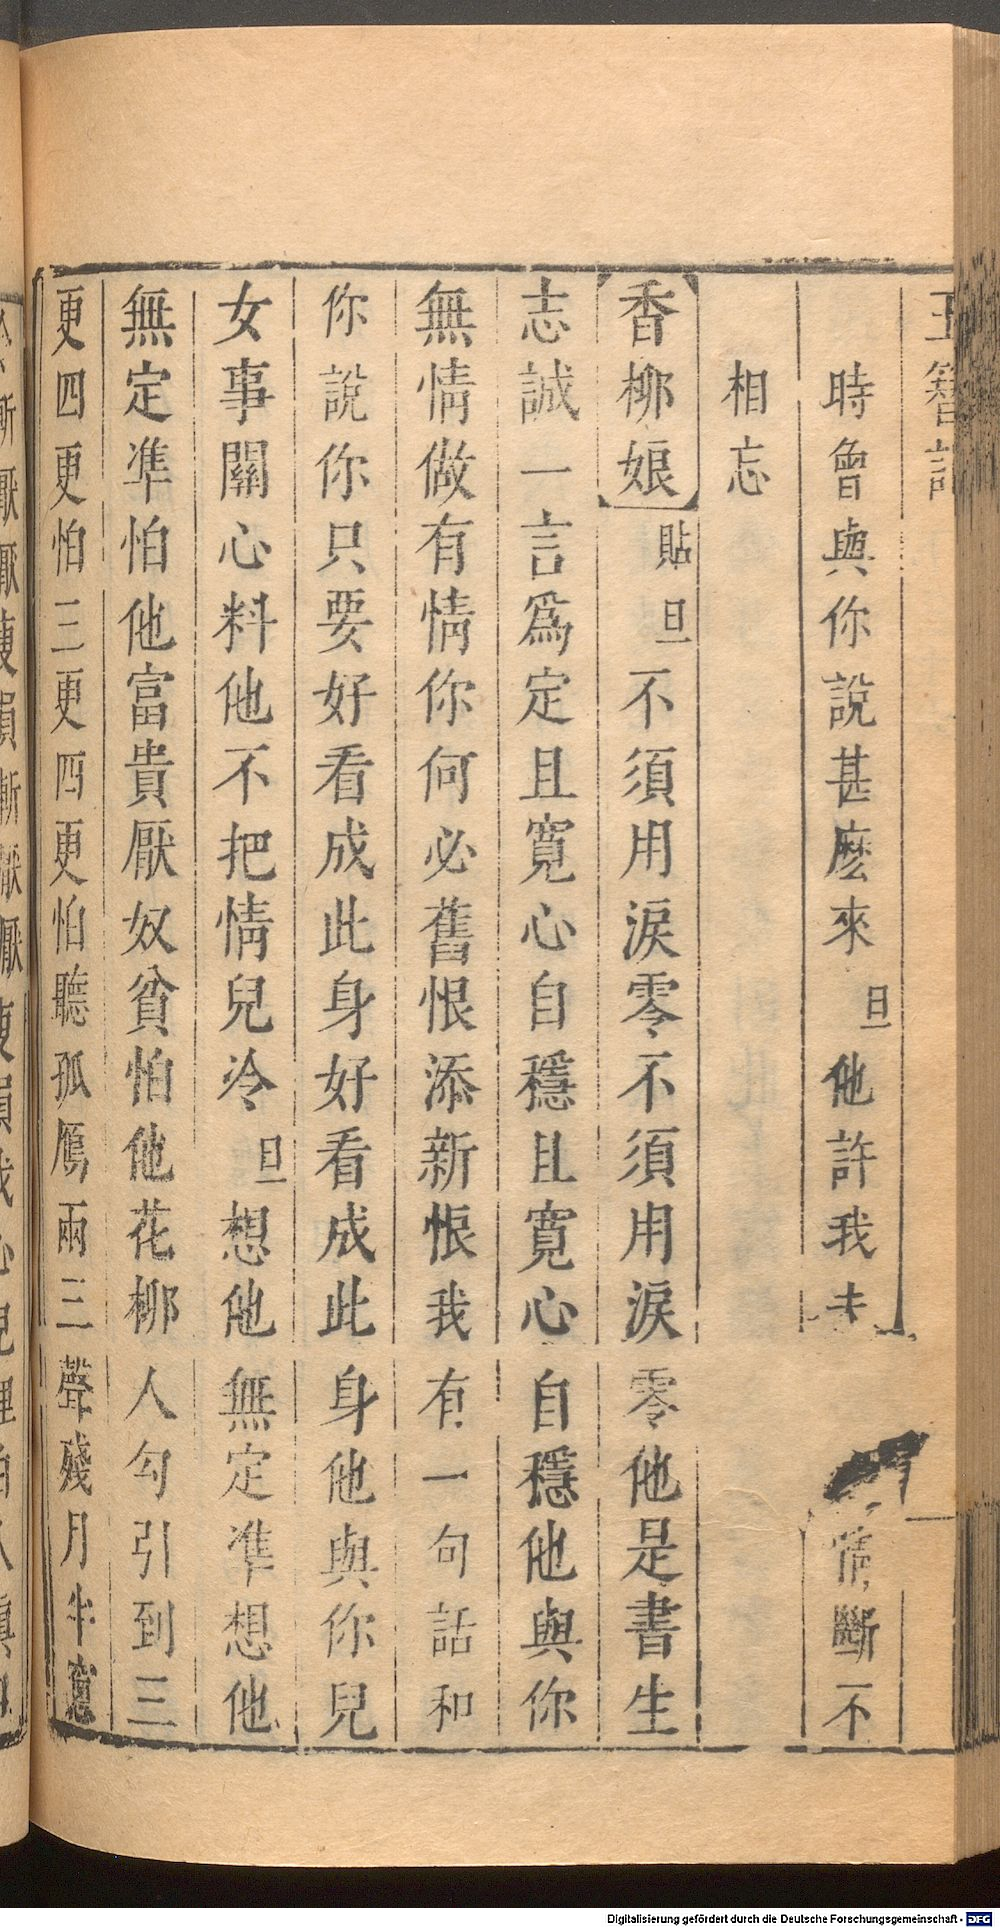 玉簪記
時曾與你說甚麽來旦他許我夫情斷不
相忘
香柳娘貼旦不須用淚零不須用淚零他是書生
志誠一言爲定且寬心自穩且寬心自穩他與你
無情做有情你何必舊恨添新恨我有一句話和
你說你只要好看成此身好看成此身他與你兒
女事關心料他不把情兒冷旦想他無定準想他
無定準怕他富貴厭奴貧怕他花柳人勾引到三
更四更怕三更四更怕聽孤鴈兩三聲殘月半窻
Digitalisierung gefördert durch die Deutsche Forschungsgemeinschaft - DFG